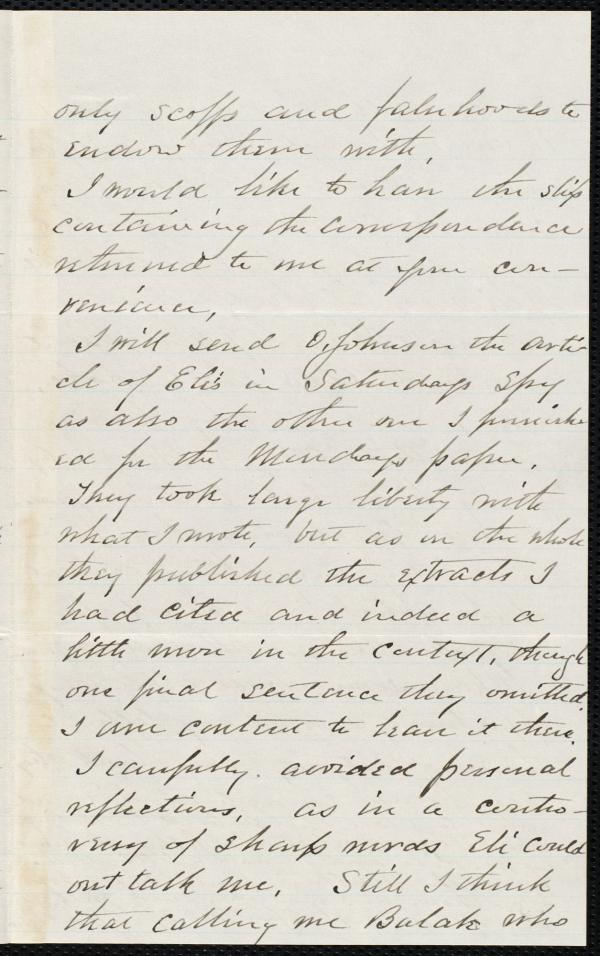 only scoffs and falsehoods to
endow them with.
I would like to have the slip
containing the correspondence
returned to me at your con-
venience,
I will send O. Johnson the arti-
cle of Eli's in Saturdays Spy
as also the other one I furnish
ed for the Mondays paper.
They took large liberty with
what I wrote, but as on the whole
they published the extracts I
had cited and indeed a
little more in the context, though
one final sentence they omitted,
I am content to leave it there.
I carefully avoided personal
reflections, as in a contro-
versy of sharp words Eli could
out talk me. Still I think
that calling me Balak who